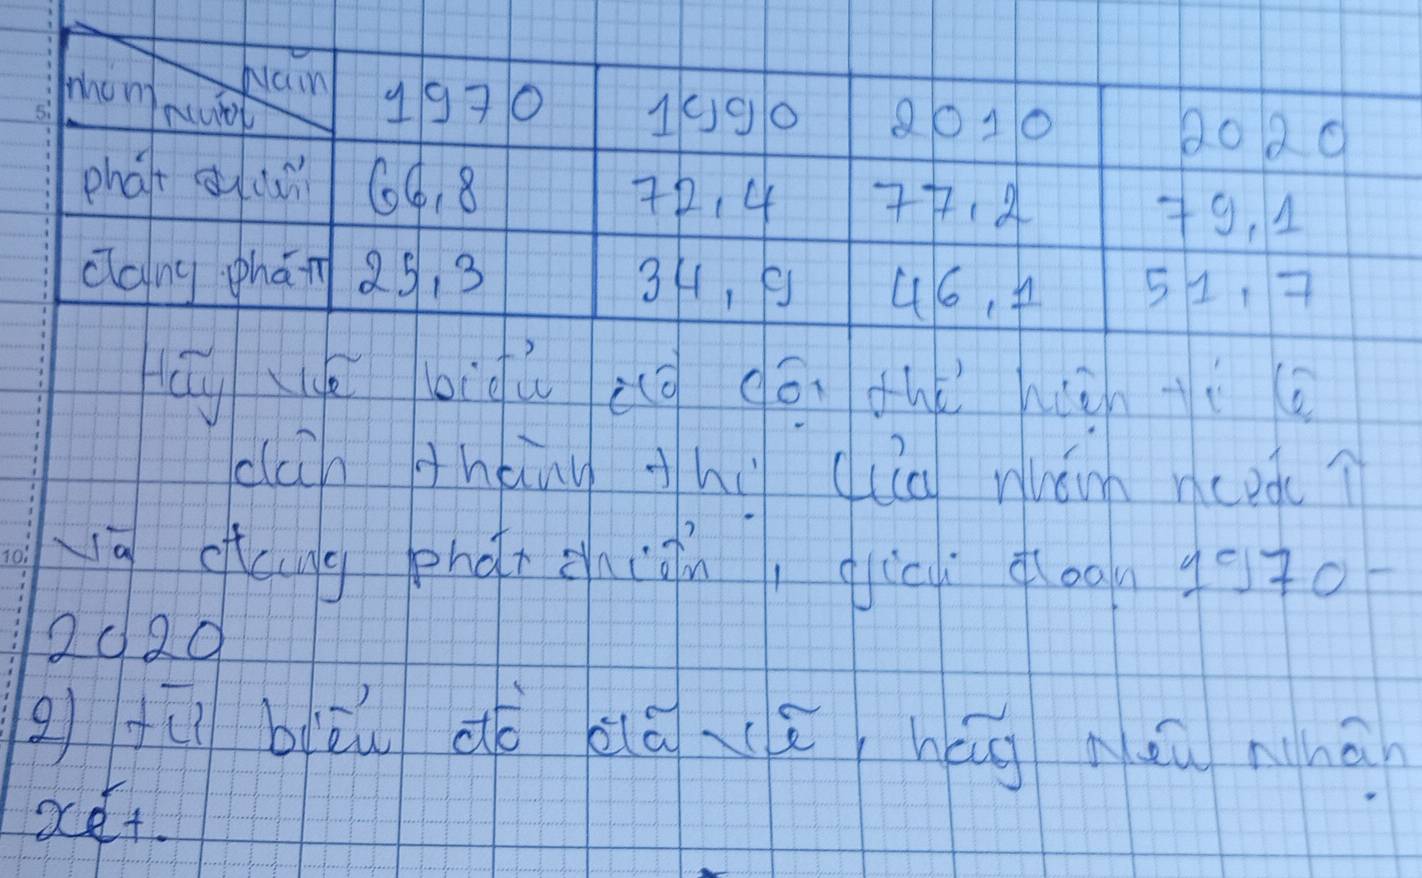 Năm
nhóm nước 1970 1990 2010 2020
phát triển 66,8 72,4 77,2 79,1
đang phát π 25,3 34,9 46,1 51,7
Hãy vẽ biểu đồ cột thể hiện tỉ lệ
dân thành thị của nhóm nước π
và đang phát triển, giai đoạn 1970-
2020
2) từ biểu đồ đã vẽ, hãy nêu nhận
xét.